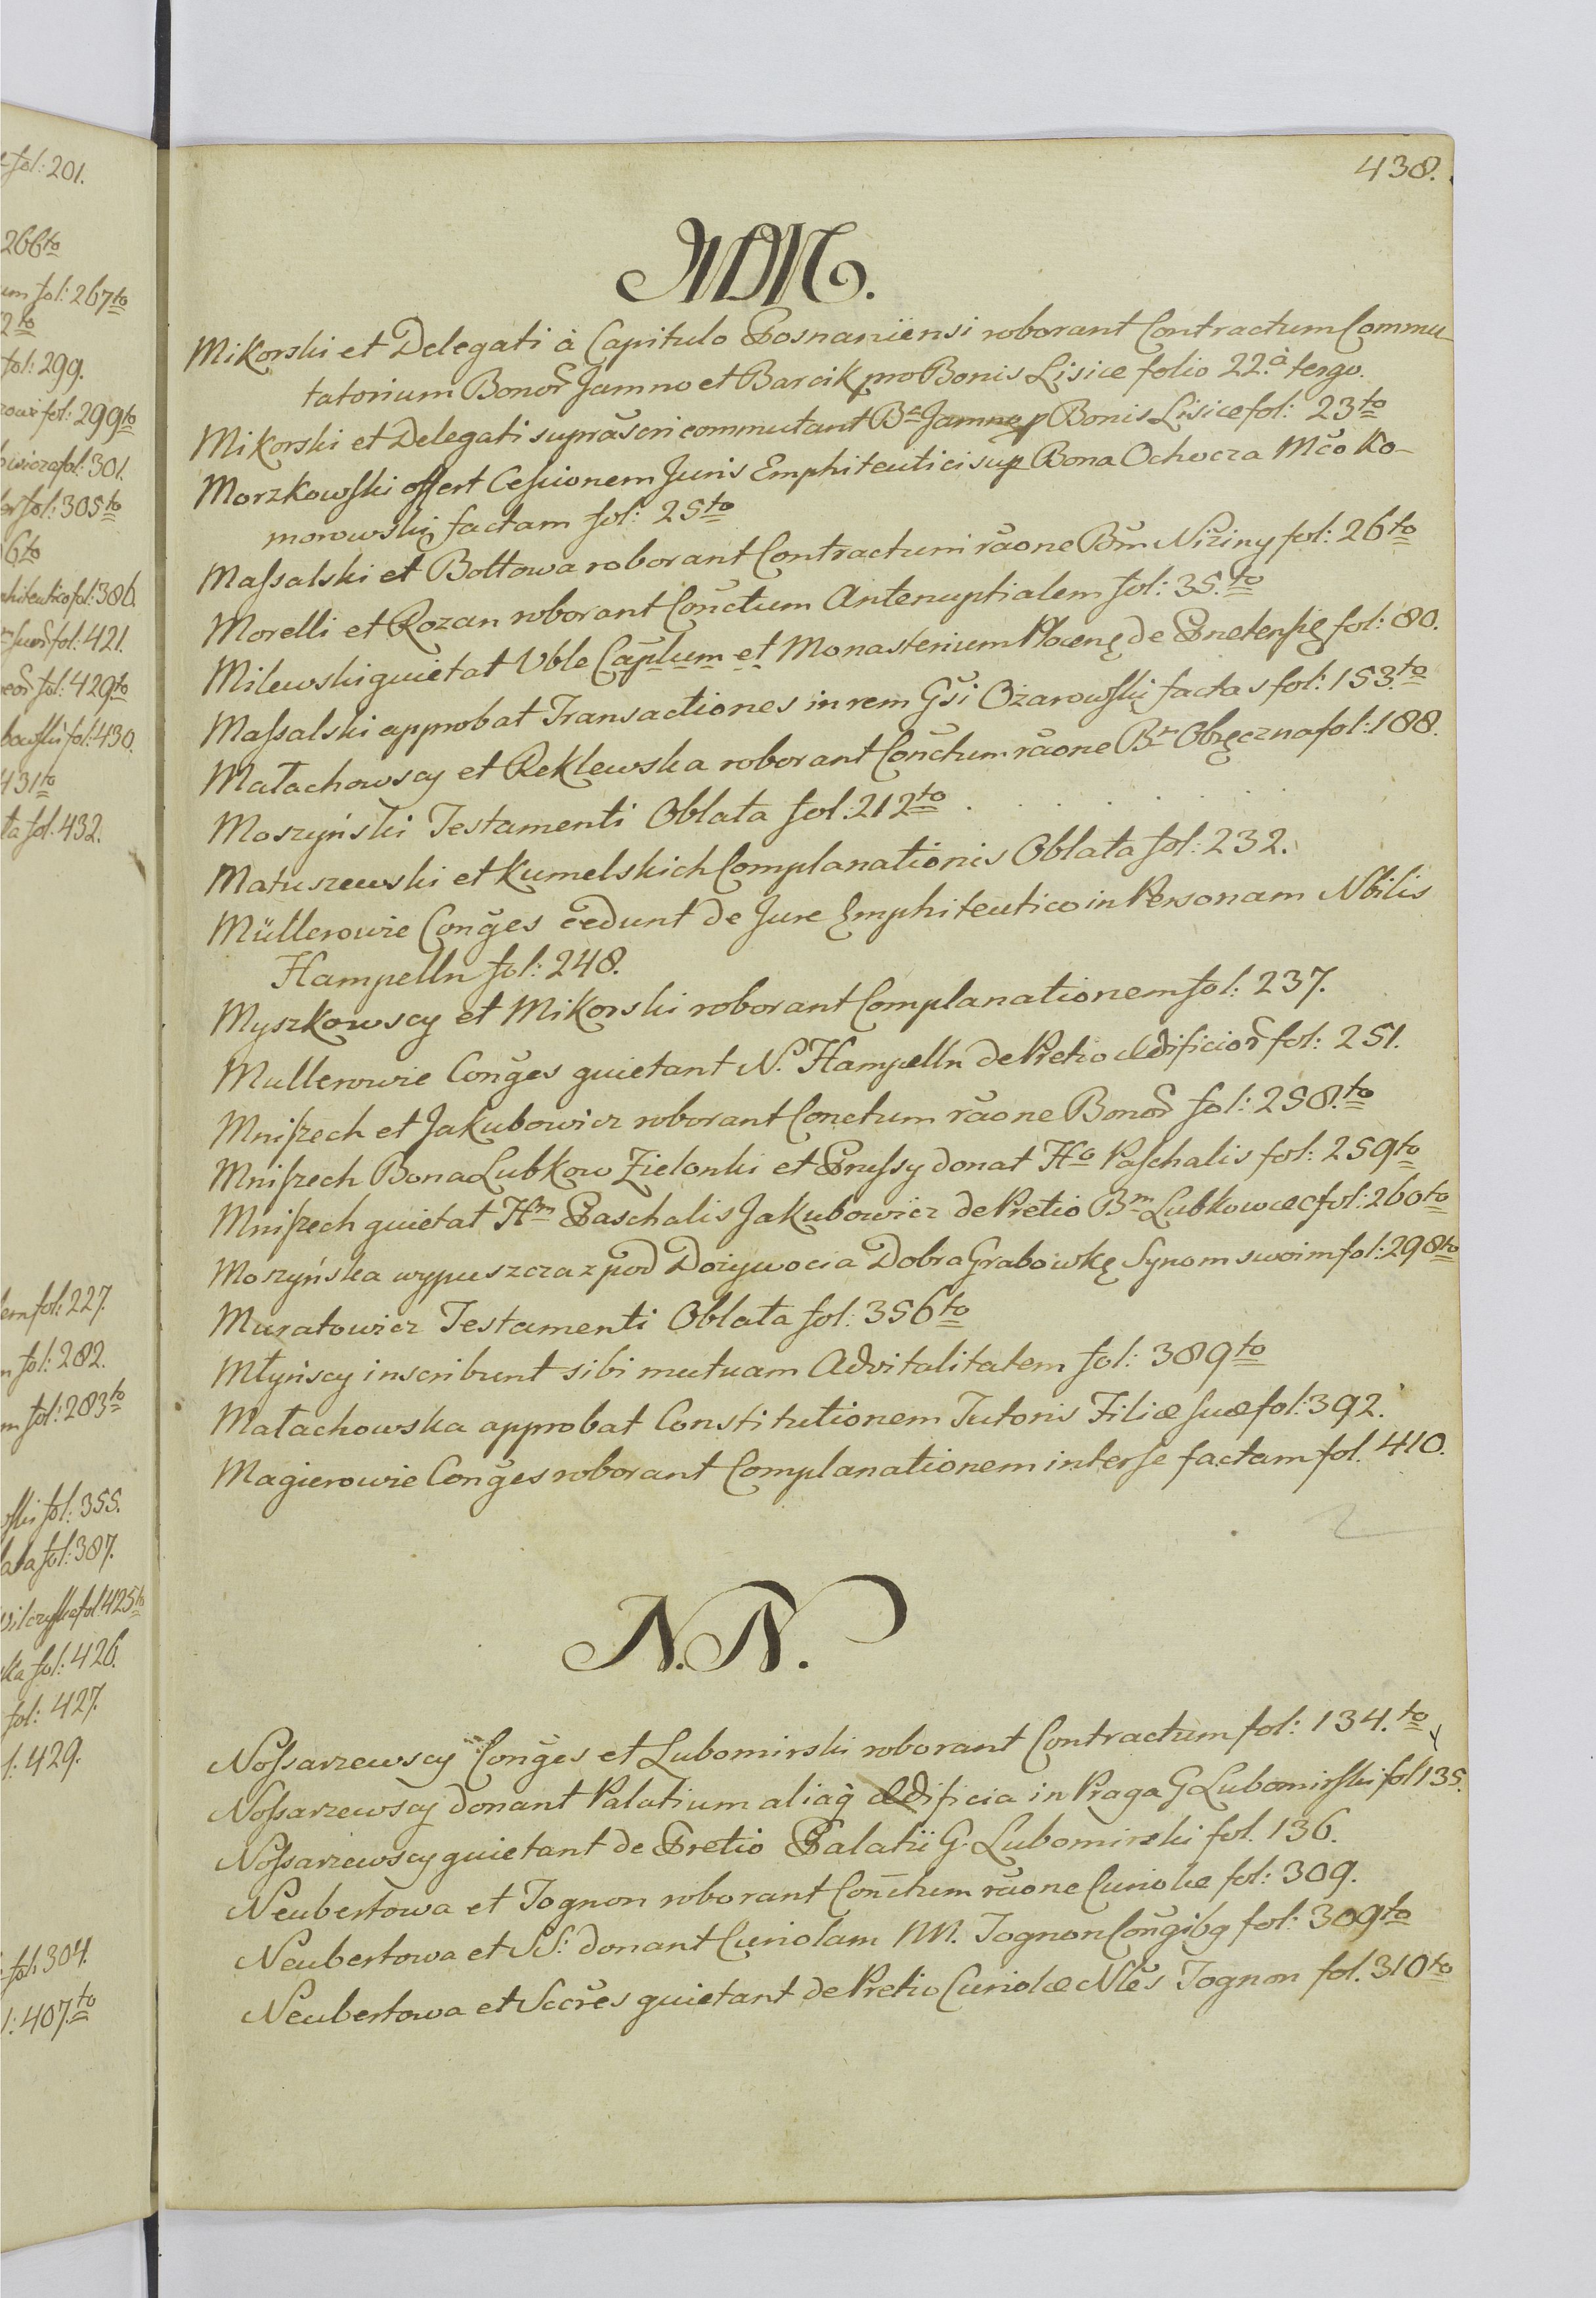 438.
MM.
Mikorski et Delegati à Capitulo Posnaniensi roborant Contractum Commu-
tatorium Bonor Jamno et Barcik pro Bonis Lisice folio 22. à tergo.
Mikorski et Delegati suprascri commutant Ba Jamno p Bonis Lisice fol: 23to
Morzkowski offert Cessionem Juris Emphiteutici sup Bona Ochocza Mco Ko-
morowski factam fol: 25to
Massalski et Bołtowa roborant Contractum raone Bm Niziny fol: 26to
Morelli et Rozan roborant Conctum Antenuptialem fol: 35.to
Milewski quietat Vble Caplum et Monasterium Płocen de Prætensię fol: 80.
Massalski approbat Transactiones in rem Gsi Ożarowski factas fol: 153.to
Małachowscy et Reklewska roborant Conctum raone Br Obręczna fol: 188.
Moszyński Testamenti Oblata fol: 212to
Matuszewski et Kumelskich Complanationis Oblata fol: 232.
Müllerowie Conges cedunt de Jure Emphiteutico in Personam Nbilis
Hampelln fol: 248.
Myszkowscy et Mikorski roborant Complanationem fol: 237.
Mullerowie Conges quietant N. Hampelln de Pretio Ædificior fol: 251.
Mniszech et Jakubowicz roborant Conctum raone Bonor fol: 258.to
Mniszech Bona Lubkow Zielonki et Prussy donat Ho Paschalis fol: 259to
Mniszech quietat Hm Paschalis Jakubowicz de Pretio Bm Lubkow &c fol: 260to
Moszyńska wypuszcza z pod Dożywocia Dobra Grabowkę Synom swoim fol: 298to
Muratowicz Testamenti Oblata fol: 356to
Młyńscy inscribunt sibi mutuam Advitalitatem fol: 389to
Małachowska approbat Constitutionem Tutoris Filiæ suæ fol: 392.
Magierowie Conges roborant Complanationem inter se factam fol. 410.
N.N.
Nossarzewscy Conges et Lubomirski roborant Contractum fol: 134.to
Nossarzewscy donant Palatium aliaq Ædificia in Praga G Lubomirski fol 135.
Nossarzewscy quietant de Pretio Palatii G. Lubomirski fol. 136.
Neubertowa et Tognon roborant Conctum raone Curiolæ fol: 309.
Neubertowa et SS: donant Curiolam NN. Tognon Congibg fol: 309to
Neubertowa et Sccres quietant de Pretio Curiolæ Nles Tognon fol. 310to